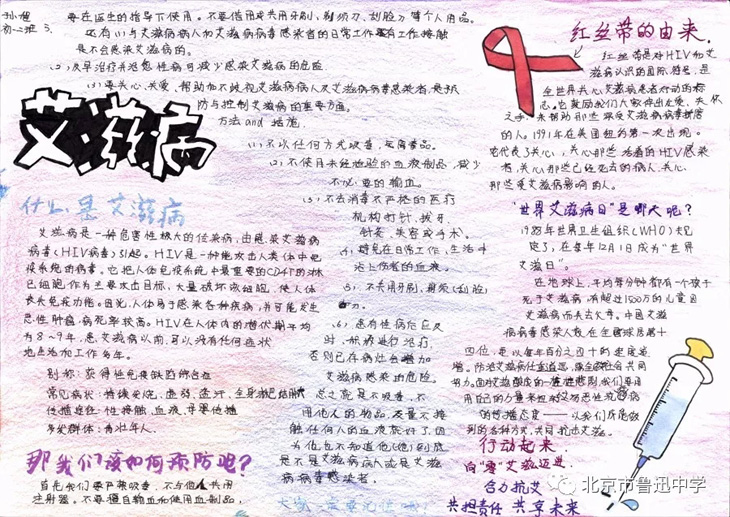 初二班
要在医生的指导下使用。不要借用或共用牙刷、剃须刀、刮脸刀等个人用品。
还有(1)与艾滋病病人和艾滋病病毒感染者的日常工作
是不会感染艾滋病的。
(2)及早治疗并治愈性病可减少感染艾滋病的危险
(3)要关心、关爱、帮助和不歧视艾滋病病人及艾滋病病毒感染者,是预
防与控制艾滋病的重要方面。
方法and 措施
(1)不以任何方式吸毒,远离毒品。
(2)不使用未经检验的血液制品,减少
不必要的输血。
(3)不去消毒不严格的医疗
机构打针、拔牙、
针灸、美容或手术。
(4)避免在日常工作、生活中
沾上伤者的血液。
(5)不共用牙刷、剃须(刮脸)
刀。
(6)患有性病后应及
时、积极进行治疗,
否则已存病灶会增加
艾滋病感染的危险。
总之就是不吸毒,不
用他人的物品,尽量不接
触任何人的血液就好了,因
为你也不知道他(她)到底
是不是艾滋病病人或是艾滋
病病毒感染者。
艾滋病
什么是艾滋病
艾滋病是一种危害性极大的传染病,由感染艾滋病
病毒(HIV病毒)引起。HIV是一种能攻击人类体中免
疫系统的病毒。它把人体免疫系统中最重要的CD4T的淋
巴细胞作为主要攻击目标,大量破坏该细胞,使人体
丧失免疫功能。因此,人体易于感染各种疾病,并可能发生
恶性肿瘤,病死率较高。HIV在人体内的潜伏期平均
为8～9年,患艾滋病以前,可以没有任何症状
地生活和工作多年。
别称:获得性免疫缺陷综合症
传播途径:性接触,血液,母婴传播
多发群体:青壮年人。
那我们该如何预防吧?
首先我们要严禁吸毒,不与他人共用
注射器。不要擅自输血和使用血制品,
红丝带的由来
红丝带是对HIV和艾
滋病认识的国际符号,是
全世界关心艾滋病患者行动的标
志。它鼓励我们大家伸出友爱、关怀
之手,来帮助那些深受艾滋病病毒
的人。1991年在美国纽约第一次出现。
它代表了关心,关心那些活着的HIV感染
者,关心那些已经死去的病人,关心
那些受艾滋病影响的人。
"世界艾滋病日"是哪天呢?
1988年世界卫生组织(WHO)规
定了,在每年12月1日成为"世界
艾滋日"。
在地球上,平均每分钟都有个孩子
死于艾滋病,有超过1500万的儿童因
艾滋病而失去父母。中国艾滋
病病毒感染人数在全国球居第十
四位,是以每年百分之四十的速度递
增。
行动起来
向"零"艾滋迈进
合力抗艾
共担责任 共享未来
北京市鲁迅中学